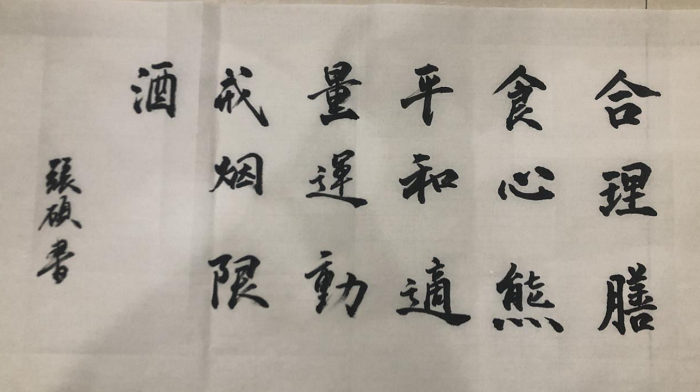 合理膳
食心熊
平和適
量運動
戒烟限
酒
張碩書